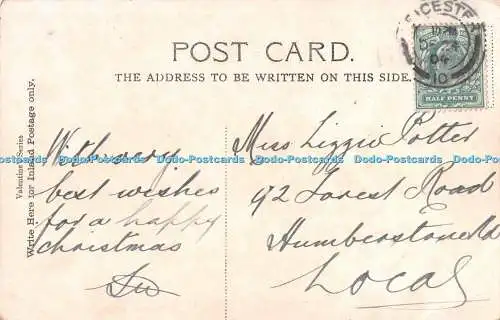 POST CARD.
THE ADDRESS TO BE WRITTEN ON THIS SIDE.
HALF PENNY
Valentine's Series
Write Here for Inland Postage only.
With very
best wishes
for a happy
Christmas
Miss Lizzie Potter
92 Forest Road
Humberstone Rd
Local
Dodo-Postcards Dodo-Postcards Dodo-Postcards Dodo-Postcards Dodo-Postcards